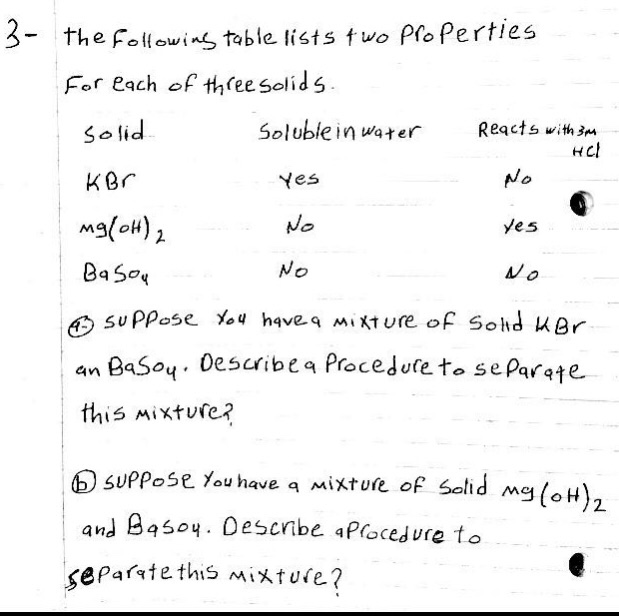 3- the following table lists two properties
For each of three solids.
Solid Soluble in water Reacts with 3M
HCl
KBr Yes No
Mg(OH)2 No Yes
BaSO4 No No
(a) Suppose You have a mixture of Solid KBr
an BaSO4. Describe a Procedure to separate
this mixture?
(b) Suppose You have a mixture of Solid Mg(OH)2
and BaSO4. Describe a Procedure to
separate this mixture?